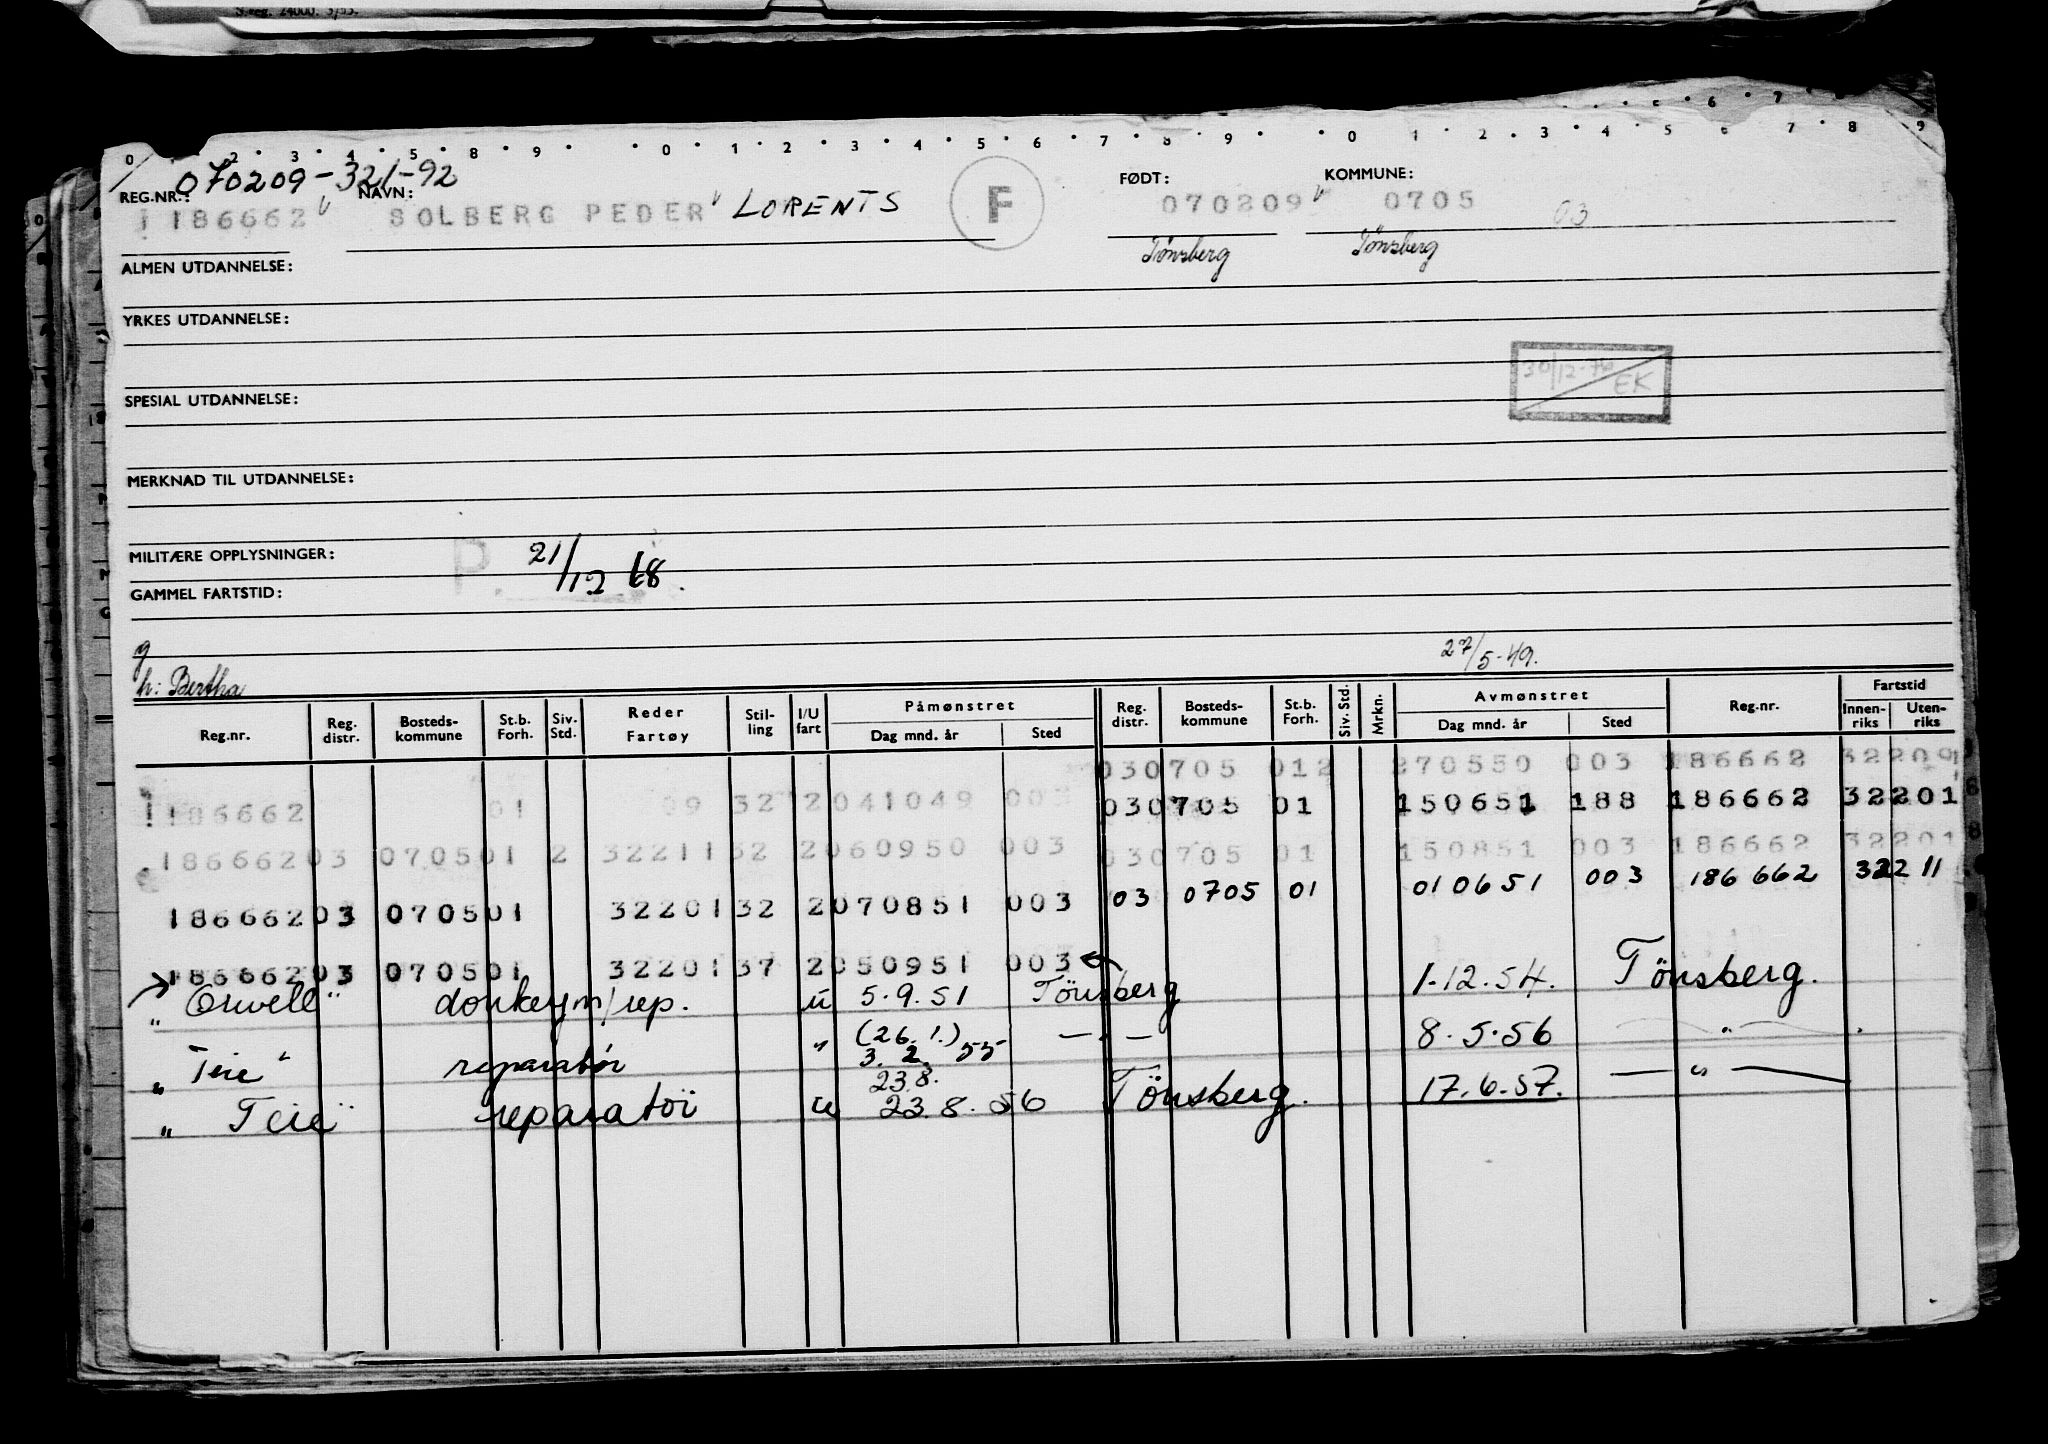 S.reg. 24000. 5/53.
0 2 3 4 5 8 9 0 1 2 3 4 5 6 7 8 9 0 1 2 3 4 5 6 7 8 9
070209-321-92
REG.NR.: NAVN: FØDT: KOMMUNE:
186662 SOLBERG PEDER LORENTS F 070209 0705 03
Tönsberg Tönsberg
ALMEN UTDANNELSE:
YRKES UTDANNELSE:
30/12-76 EK
SPESIAL UTDANNELSE:
MERKNAD TIL UTDANNELSE:
MILITÆRE OPPLYSNINGER: P. 21/12 68.
GAMMEL FARTSTID:
g
h: Bertha 27/5-49.
Reg.nr. Reg. distr. Bosteds-kommune St.b. Forh. Siv. Std. Reder Fartøy Stil-ling I/U fart Påmønstret Dag mnd. år Sted Reg. distr. Bosteds-kommune St.b. Forh. Siv. Std. Mrkn. Avmønstret Dag mnd. år Sted Reg.nr. Fartstid Innen-riks Uten-riks
030705 012 270550 003 186662 32209
186662 01 09 32 2041049 003 030705 01 150651 188 186662 32201
18666203 070501 2 32211 32 2060950 003 030705 01 150851 003 186662 32201
18666203 070501 32201 32 2070851 003 03 0705 01 010651 003 186 662 322 11
18666203 070501 32201 37 2050951 003
"Orwell" donkeym/rep. u 5.9.51 Tönsberg 1.12.54. Tönsberg.
"Teie" reparatör " (26.1.) 3.2. 55 — " — 8.5.56 — " —
23.8.
"Teie" reparatör u 23.8.56 Tönsberg. 17.6.57. — " —